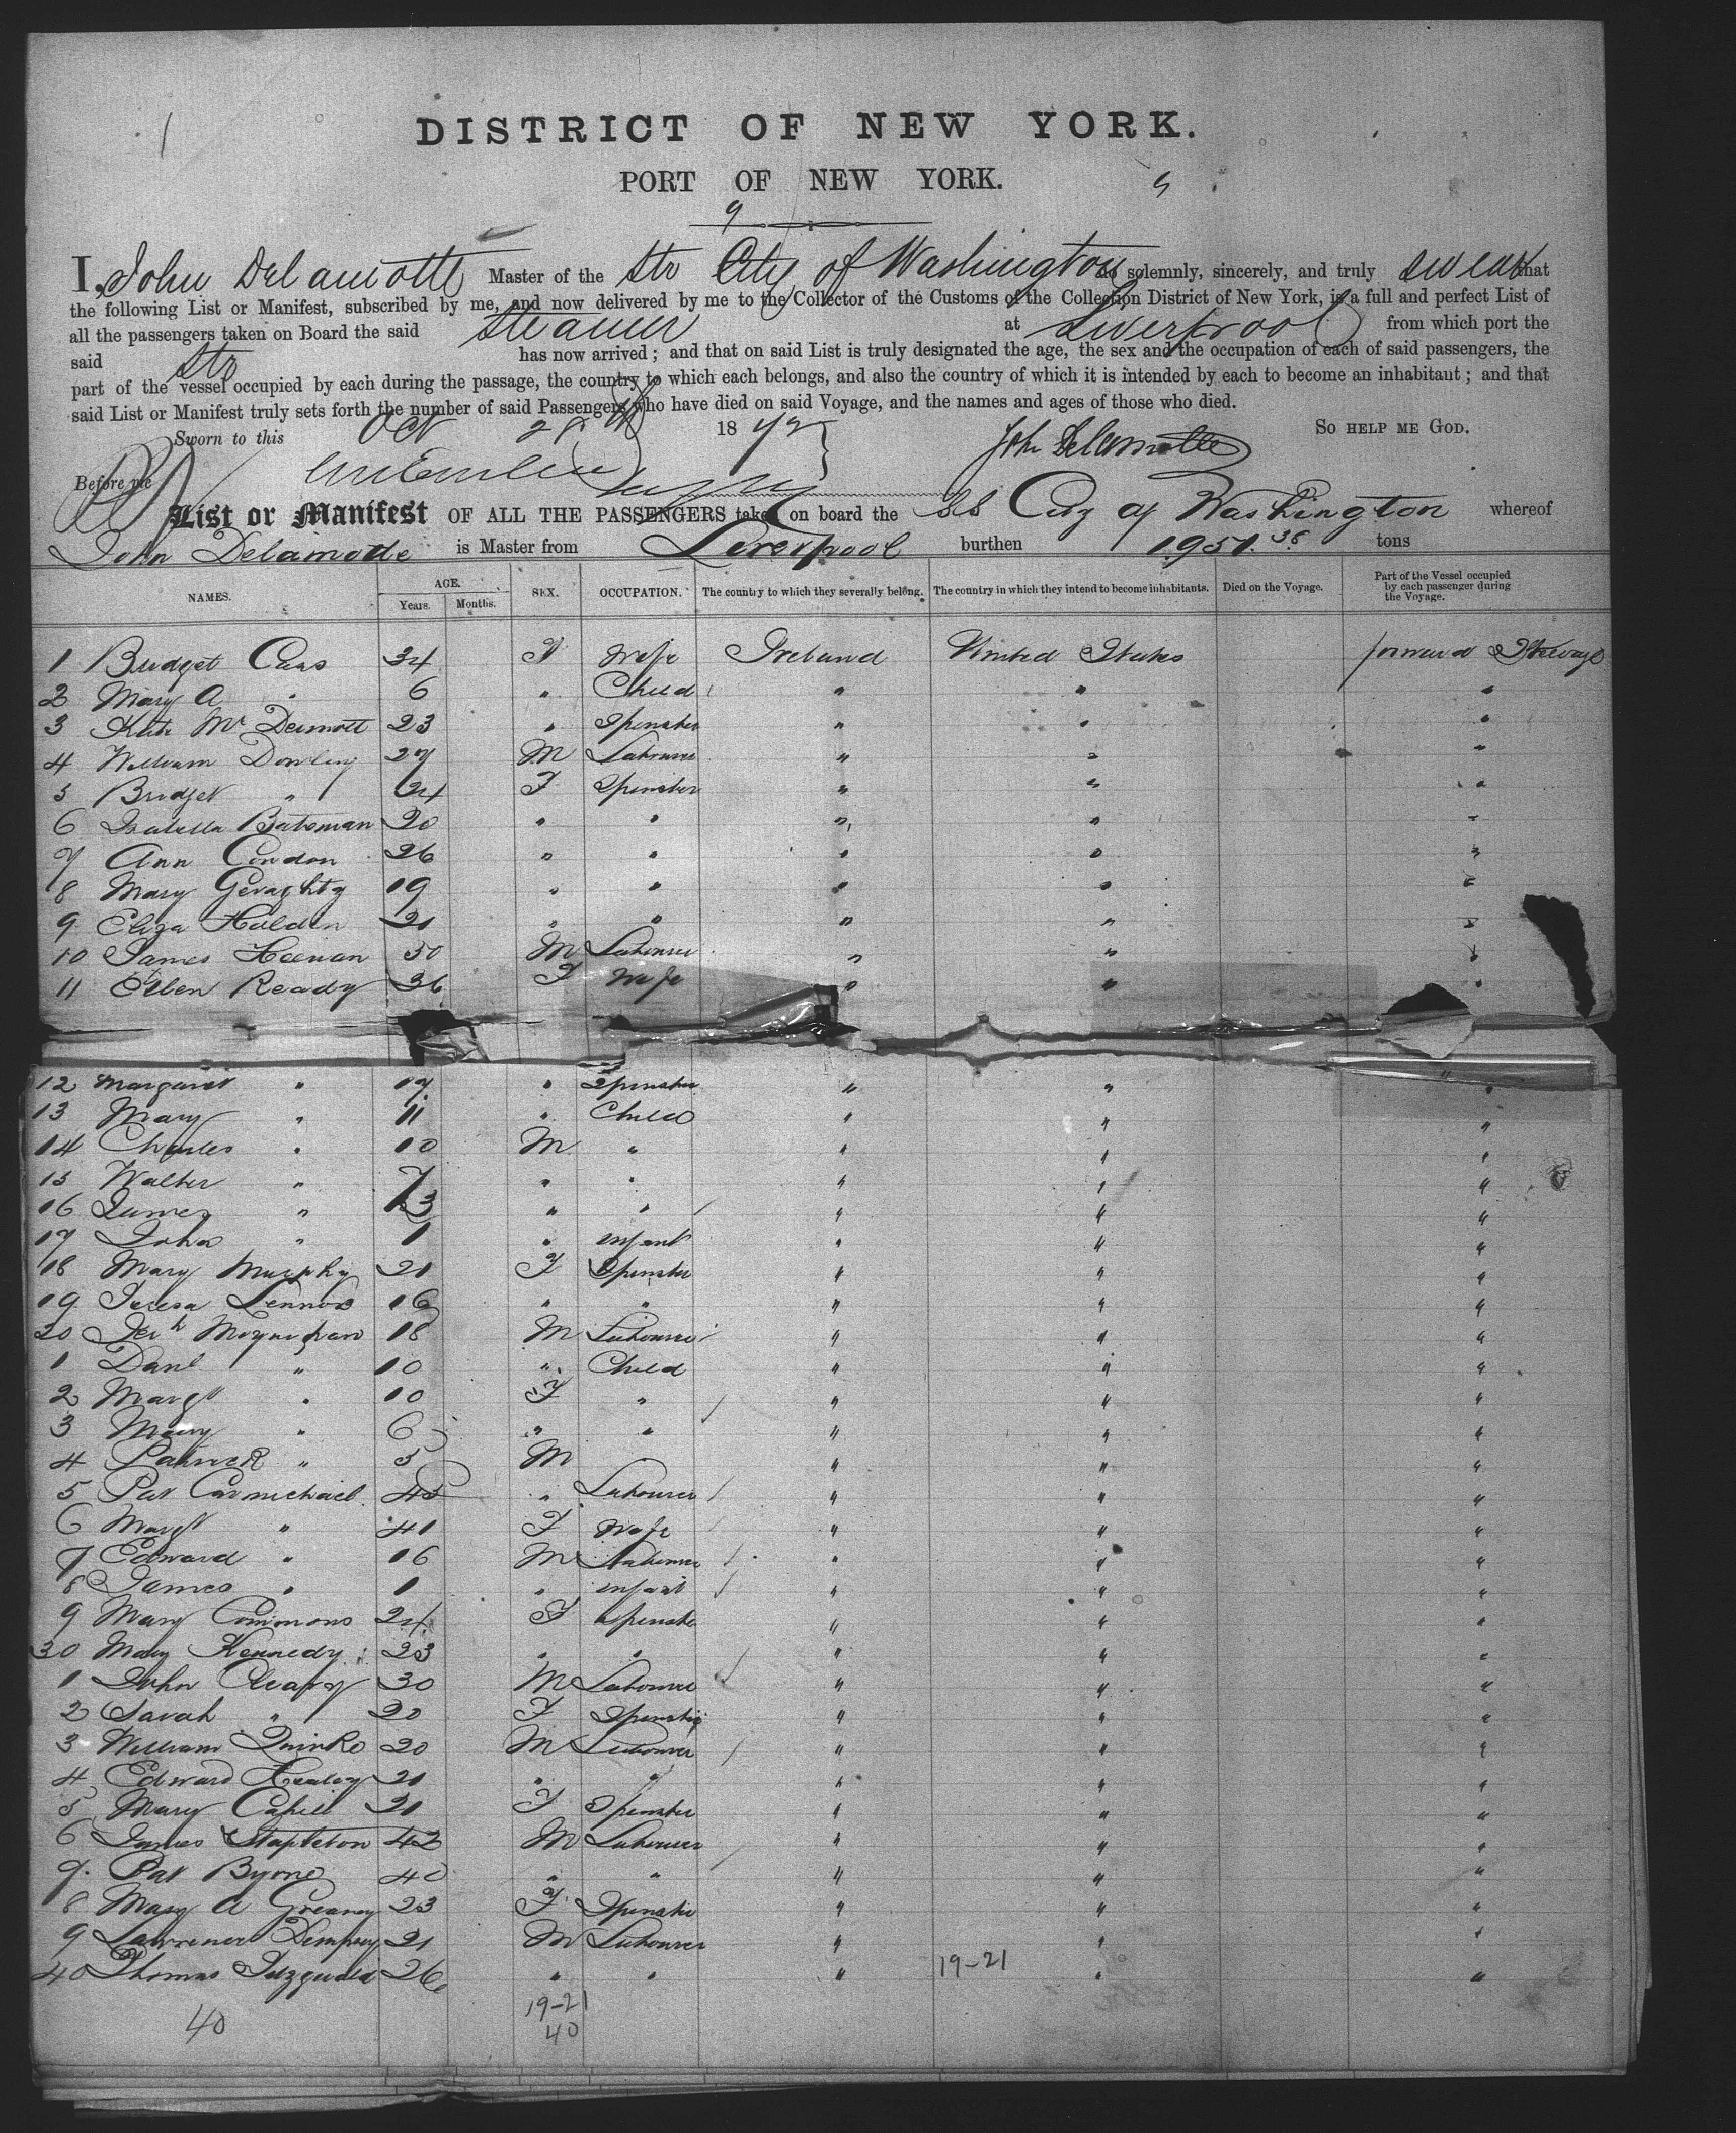 DISTRICT OF NEW YORK.
PORT OF NEW YORK.
9
I, John Delamotte Master of the Str City of Washington do solemnly, sincerely, and truly swear that
the following List or Manifest, subscribed by me, and now delivered by me to the Collector of the Customs of the Collection District of New York, is a full and perfect List of
all the passengers taken on Board the said Steamer at Liverpool from which port the
said Str has now arrived; and that on said List is truly designated the age, the sex and the occupation of each of said passengers, the
part of the vessel occupied by each during the passage, the country to which each belongs, and also the country of which it is intended by each to become an inhabitant; and that
said List or Manifest truly sets forth the number of said Passengers who have died on said Voyage, and the names and ages of those who died.
Sworn to this Oct 28th 1872 John Delamotte SO HELP ME GOD.
Before me
List or Manifest OF ALL THE PASSENGERS taken on board the SS City of Washington whereof
John Delamotte is Master from Liverpool burthen 1951.38 tons
NAMES. AGE. Years. Months. SEX. OCCUPATION. The country to which they severally belong. The country in which they intend to become inhabitants. Died on the Voyage. Part of the Vessel occupied by each passenger during the Voyage.
1 Bridget Cass 34 F Wife Ireland United States forward Steerage
2 Mary A " 6 " Child " " "
3 Kate McDermott 23 " Spinster " " "
4 William Dowling 27 M Labourer " " "
5 Bridget " 24 F Spinster " " "
6 Isabella Bateman 20 " " " " "
7 Ann Condon 26 " " " " "
8 Mary Geraghty 19 " " " " "
9 Eliza Holden 21 " " " " "
10 James Heenan 30 M Labourer " " "
11 Ellen Ready 36 F Wife " " "
12 Margaret " 17 " Spinster " " "
13 Mary " 11 " Child " " "
14 Charles " 10 M " " " "
15 Walter " 7 " " " " "
16 James " 3 " " " " "
17 John " 1 " infant " " "
18 Mary Murphy 21 F Spinster " " "
19 Teresa Lennox 16 " " " " "
20 Jerh Moynihan 18 M Labourer " " "
1 Danl " 10 " Child " " "
2 Margt " 10 F " " " "
3 Mary " 6 " " " " "
4 Patrick " 5 M " " "
5 Pat Carmichael 45 " Labourer " " "
6 Margt " 41 F Wife " " "
7 Edward " 16 M Labourer " " "
8 James " 1 " infant " " "
9 Mary Commons 24 F Spinster " " "
30 Mary Kennedy 23 " " " " "
1 John Cleary 30 M Labourer " " "
2 Sarah " 20 F Spinster " " "
3 William Quirke 20 M Labourer " " "
4 Edward Healey 21 " " " " "
5 Mary Cahill 21 F Spinster " " "
6 James Stapleton 42 M Labourer " " "
7 Pat Byrne 40 " " " " "
8 Mary A Greaney 23 F Spinster " " "
9 Lawrence Dempsey 21 M Labourer " " "
40 Thomas Fitzgerald 26 " " " 19-21 " "
40 19-21
40